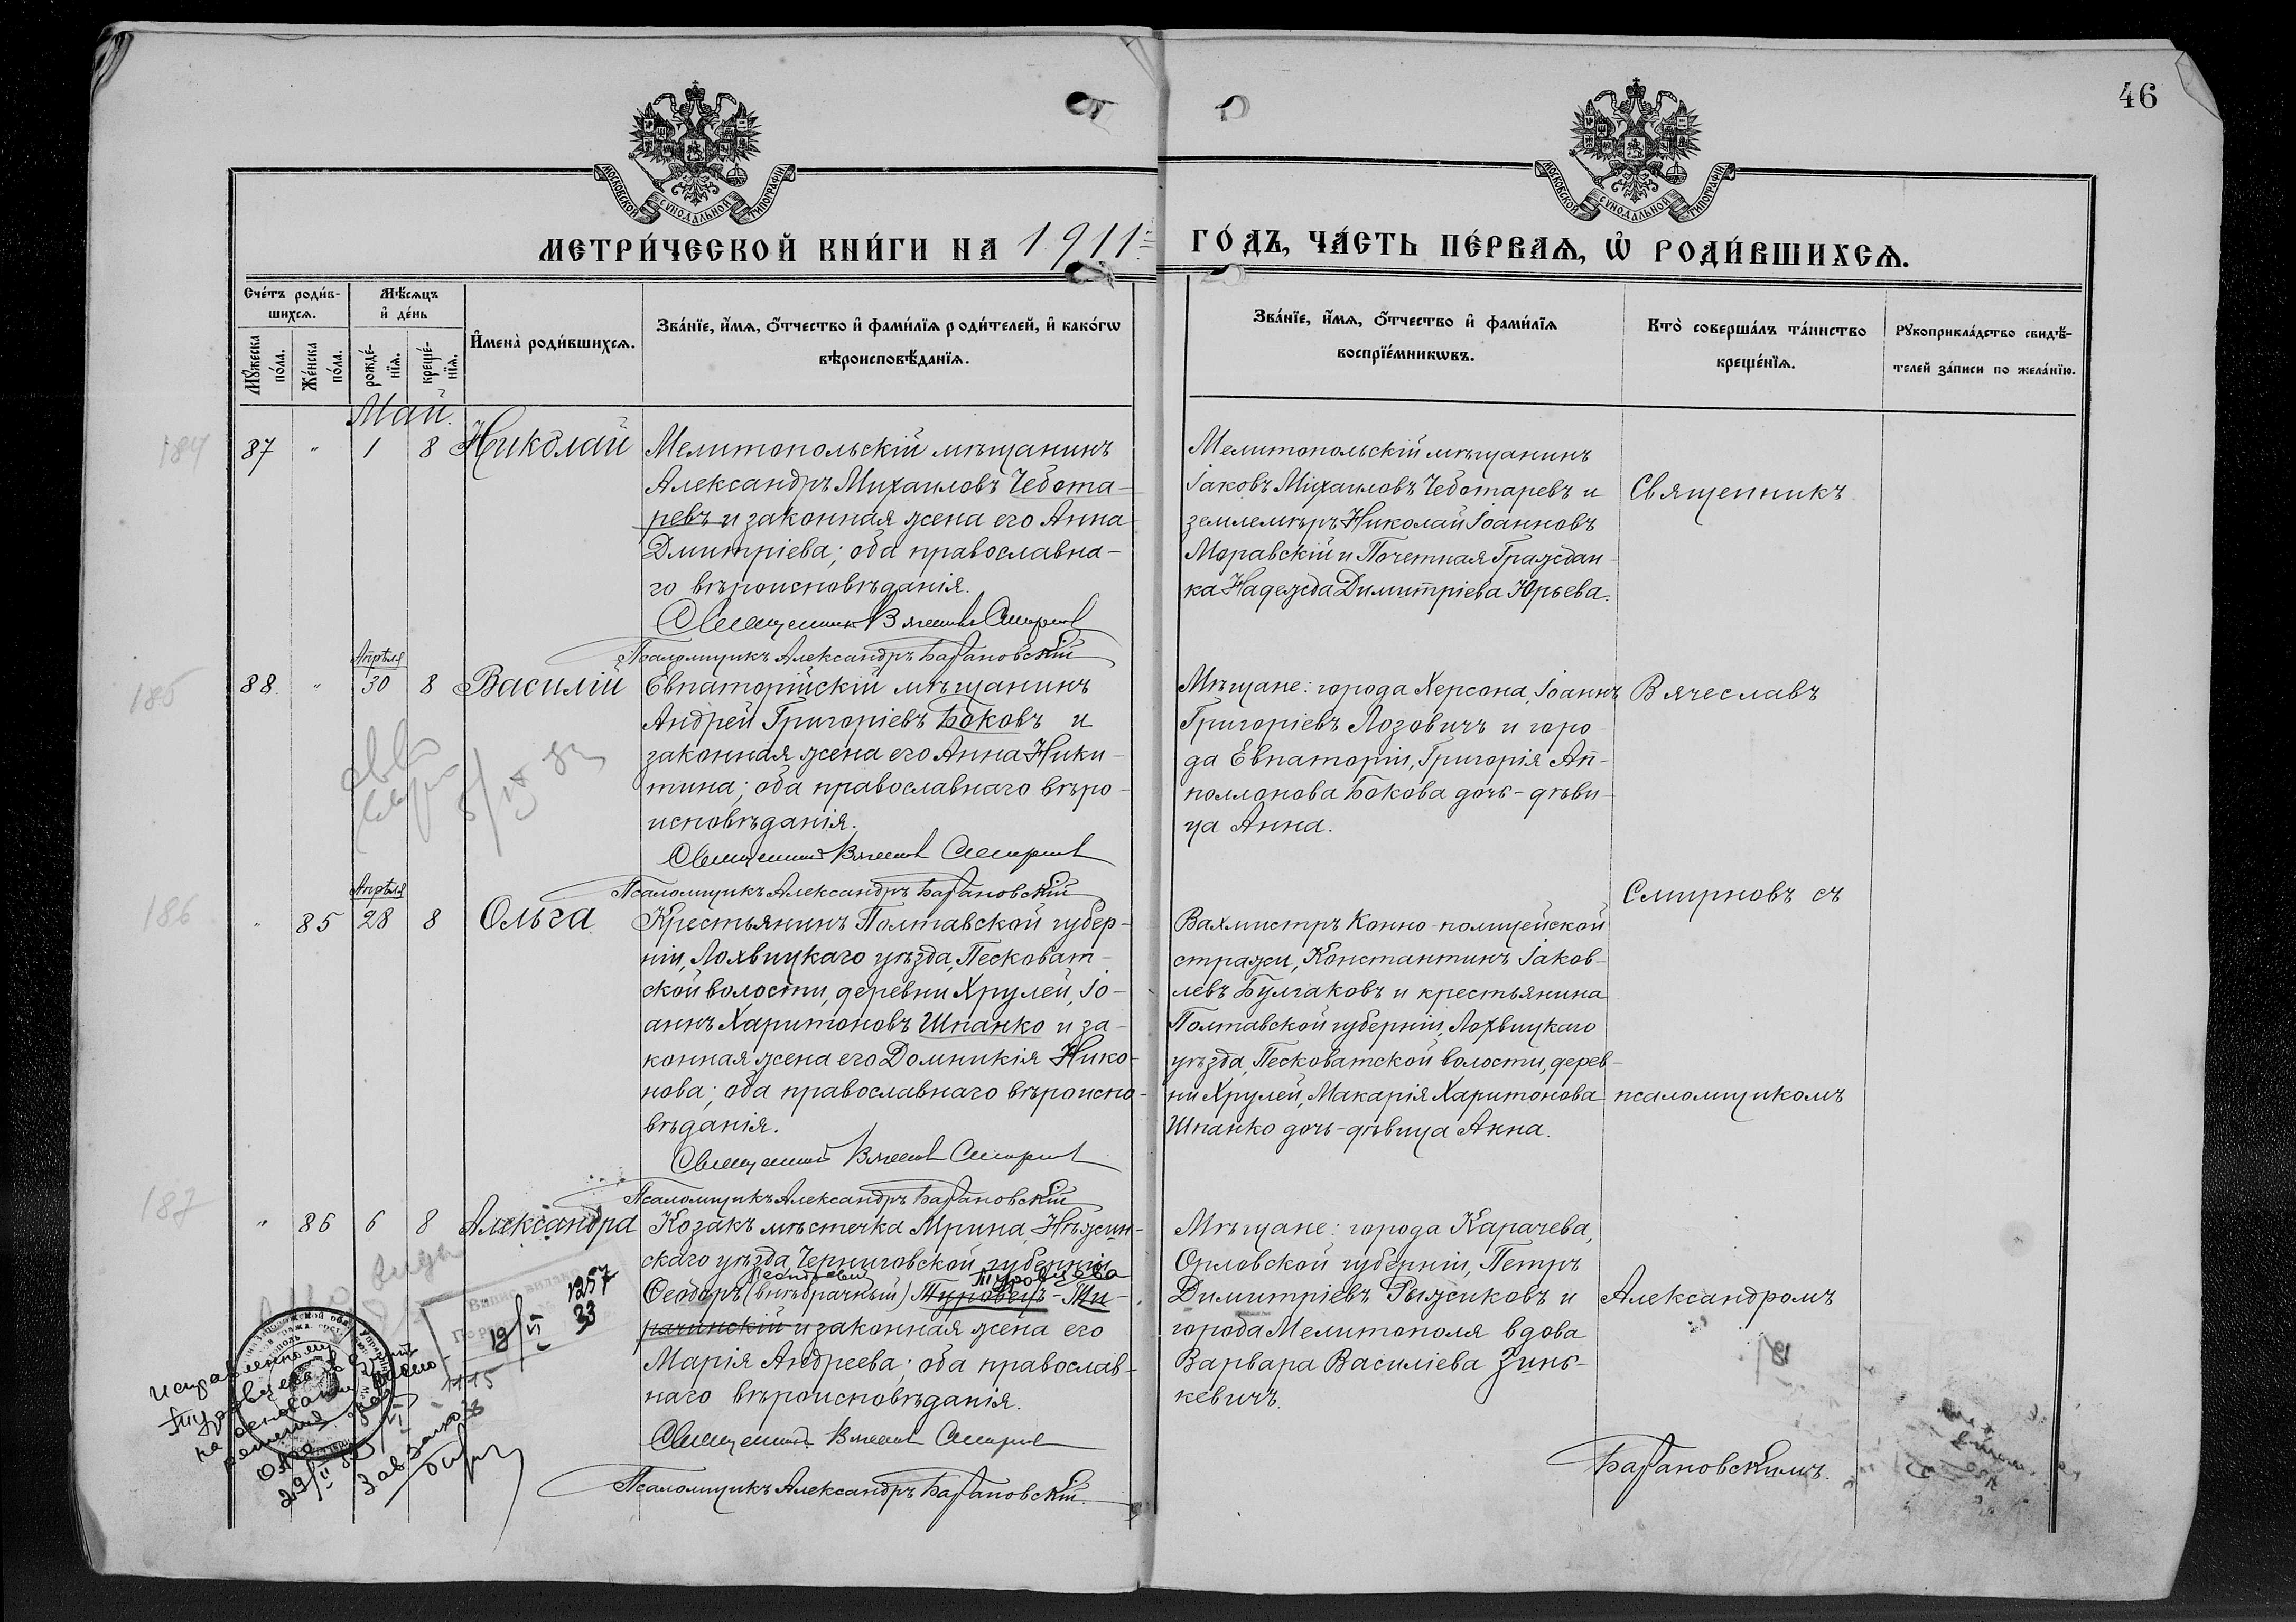 46
МОСКОВСКОЙ СУНОДАЛЬНОЙ ТИПОГРАФІИ
МОСКОВСКОЙ СУНОДАЛЬНОЙ ТИПОГРАФІИ
МЕТРИ́ЧЕСКОЙ КНИ́ГИ НА 1911
ГО́ДЪ, ЧА́СТЬ ПЕ́РВАѦ, Ѽ РОДИ́ВШИХСѦ.
Сче́тъ роди́в-
шихсѧ.
Мѣ́сѧцъ
и҆ де́нь
Мꙋ́жеска
по́ла.
Же́нска
по́ла.
рожде́-
нїѧ.
креще́-
нїѧ.
И҆мена̀ роди́вшихсѧ.
Зва́нїе, и҆́мѧ, ѻ҆́тчество и҆ фами́лїѧ роди́телей, и҆ како́гѡ
вѣроисповѣ́данїѧ.
Зва́нїе, и҆́мѧ, ѻ҆́тчество и҆ фами́лїѧ
воспрїе́мникѡвъ.
Кто̀ соверша́лъ та́инство
креще́нїѧ.
Рꙋкоприкла́дство свидѣ́-
телей за́писи по жела́нїю.
Май.
184
87 " 1 8 Николай
Мелитопольскій мѣщанинъ
Александръ Михаиловъ Чебота-
ревъ и законная жена его Анна
Дмитріева; оба православна-
го вѣроисповѣданія.
Священникъ Вячеславъ Смирновъ
Псаломщикъ Александръ Барановскій
Мелитопольскій мѣщанинъ
Іаковъ Михаиловъ Чеботаревъ и
землемѣръ Николай Іоанновъ
Моравскій и Почетная Граждан-
ка Надежда Димитріева Юрьева.
Священникъ
185
Апрѣля
88. " 30 8 Василій
Евпаторійскій мѣщанинъ
Андрей Григоріевъ Боковъ и
законная жена его Анна Ники-
тина; оба православнаго вѣро-
исповѣданія.
Священникъ Вячеславъ Смирновъ
Псаломщикъ Александръ Барановскій
Мѣщане: города Херсона, Іоаннъ
Григоріевъ Лозовичъ и горо-
да Евпаторіи, Григорія Ап-
поллонова Бокова дочь-дѣви-
ца Анна.
Вячеславъ
186
Апрѣля
" 85 28 8 Ольга
Крестьянинъ Полтавской губер-
ніи, Лохвицкаго уѣзда, Песковат-
ской волости, деревни Хрулей, Іо-
аннъ Харитоновъ Шпанко и за-
конная жена его Домникія Нико-
нова; оба православнаго вѣроиспо-
вѣданія.
Священникъ Вячеславъ Смирновъ
Псаломщикъ Александръ Барановскій
Смирновъ съ
Вахмистръ Конно-полицейской
стражи, Константинъ Іаков-
левъ Булгаковъ и крестьянина
Полтавской губерніи, Лохвицкаго
уѣзда, Песковатской волости, дерев-
ни Хрулей, Макарія Харитонова
Шпанко дочь-дѣвица Анна.
псаломщикомъ
187
" 86 6 8 Александра
Козакъ мѣстечка Мрина, Нѣжин-
скаго уѣзда, Черниговской губерніи
Туровцева
Ѳеодоръ (внѣбрачный) Туровецъ-Ти-
рачинскій и законная жена его
Марія Андреева; оба православ-
наго вѣроисповѣданія.
Священникъ Вячеславъ Смирновъ
Псаломщикъ Александръ Барановскій.
Мѣщане: города Карачева,
Орловской губерніи, Петръ
Димитріевъ Рыжиковъ и
города Мелитополя вдова
Варвара Василіева Зинь-
кевичъ.
Александромъ
Барановскимъ.
1257
33
19/VI
1115